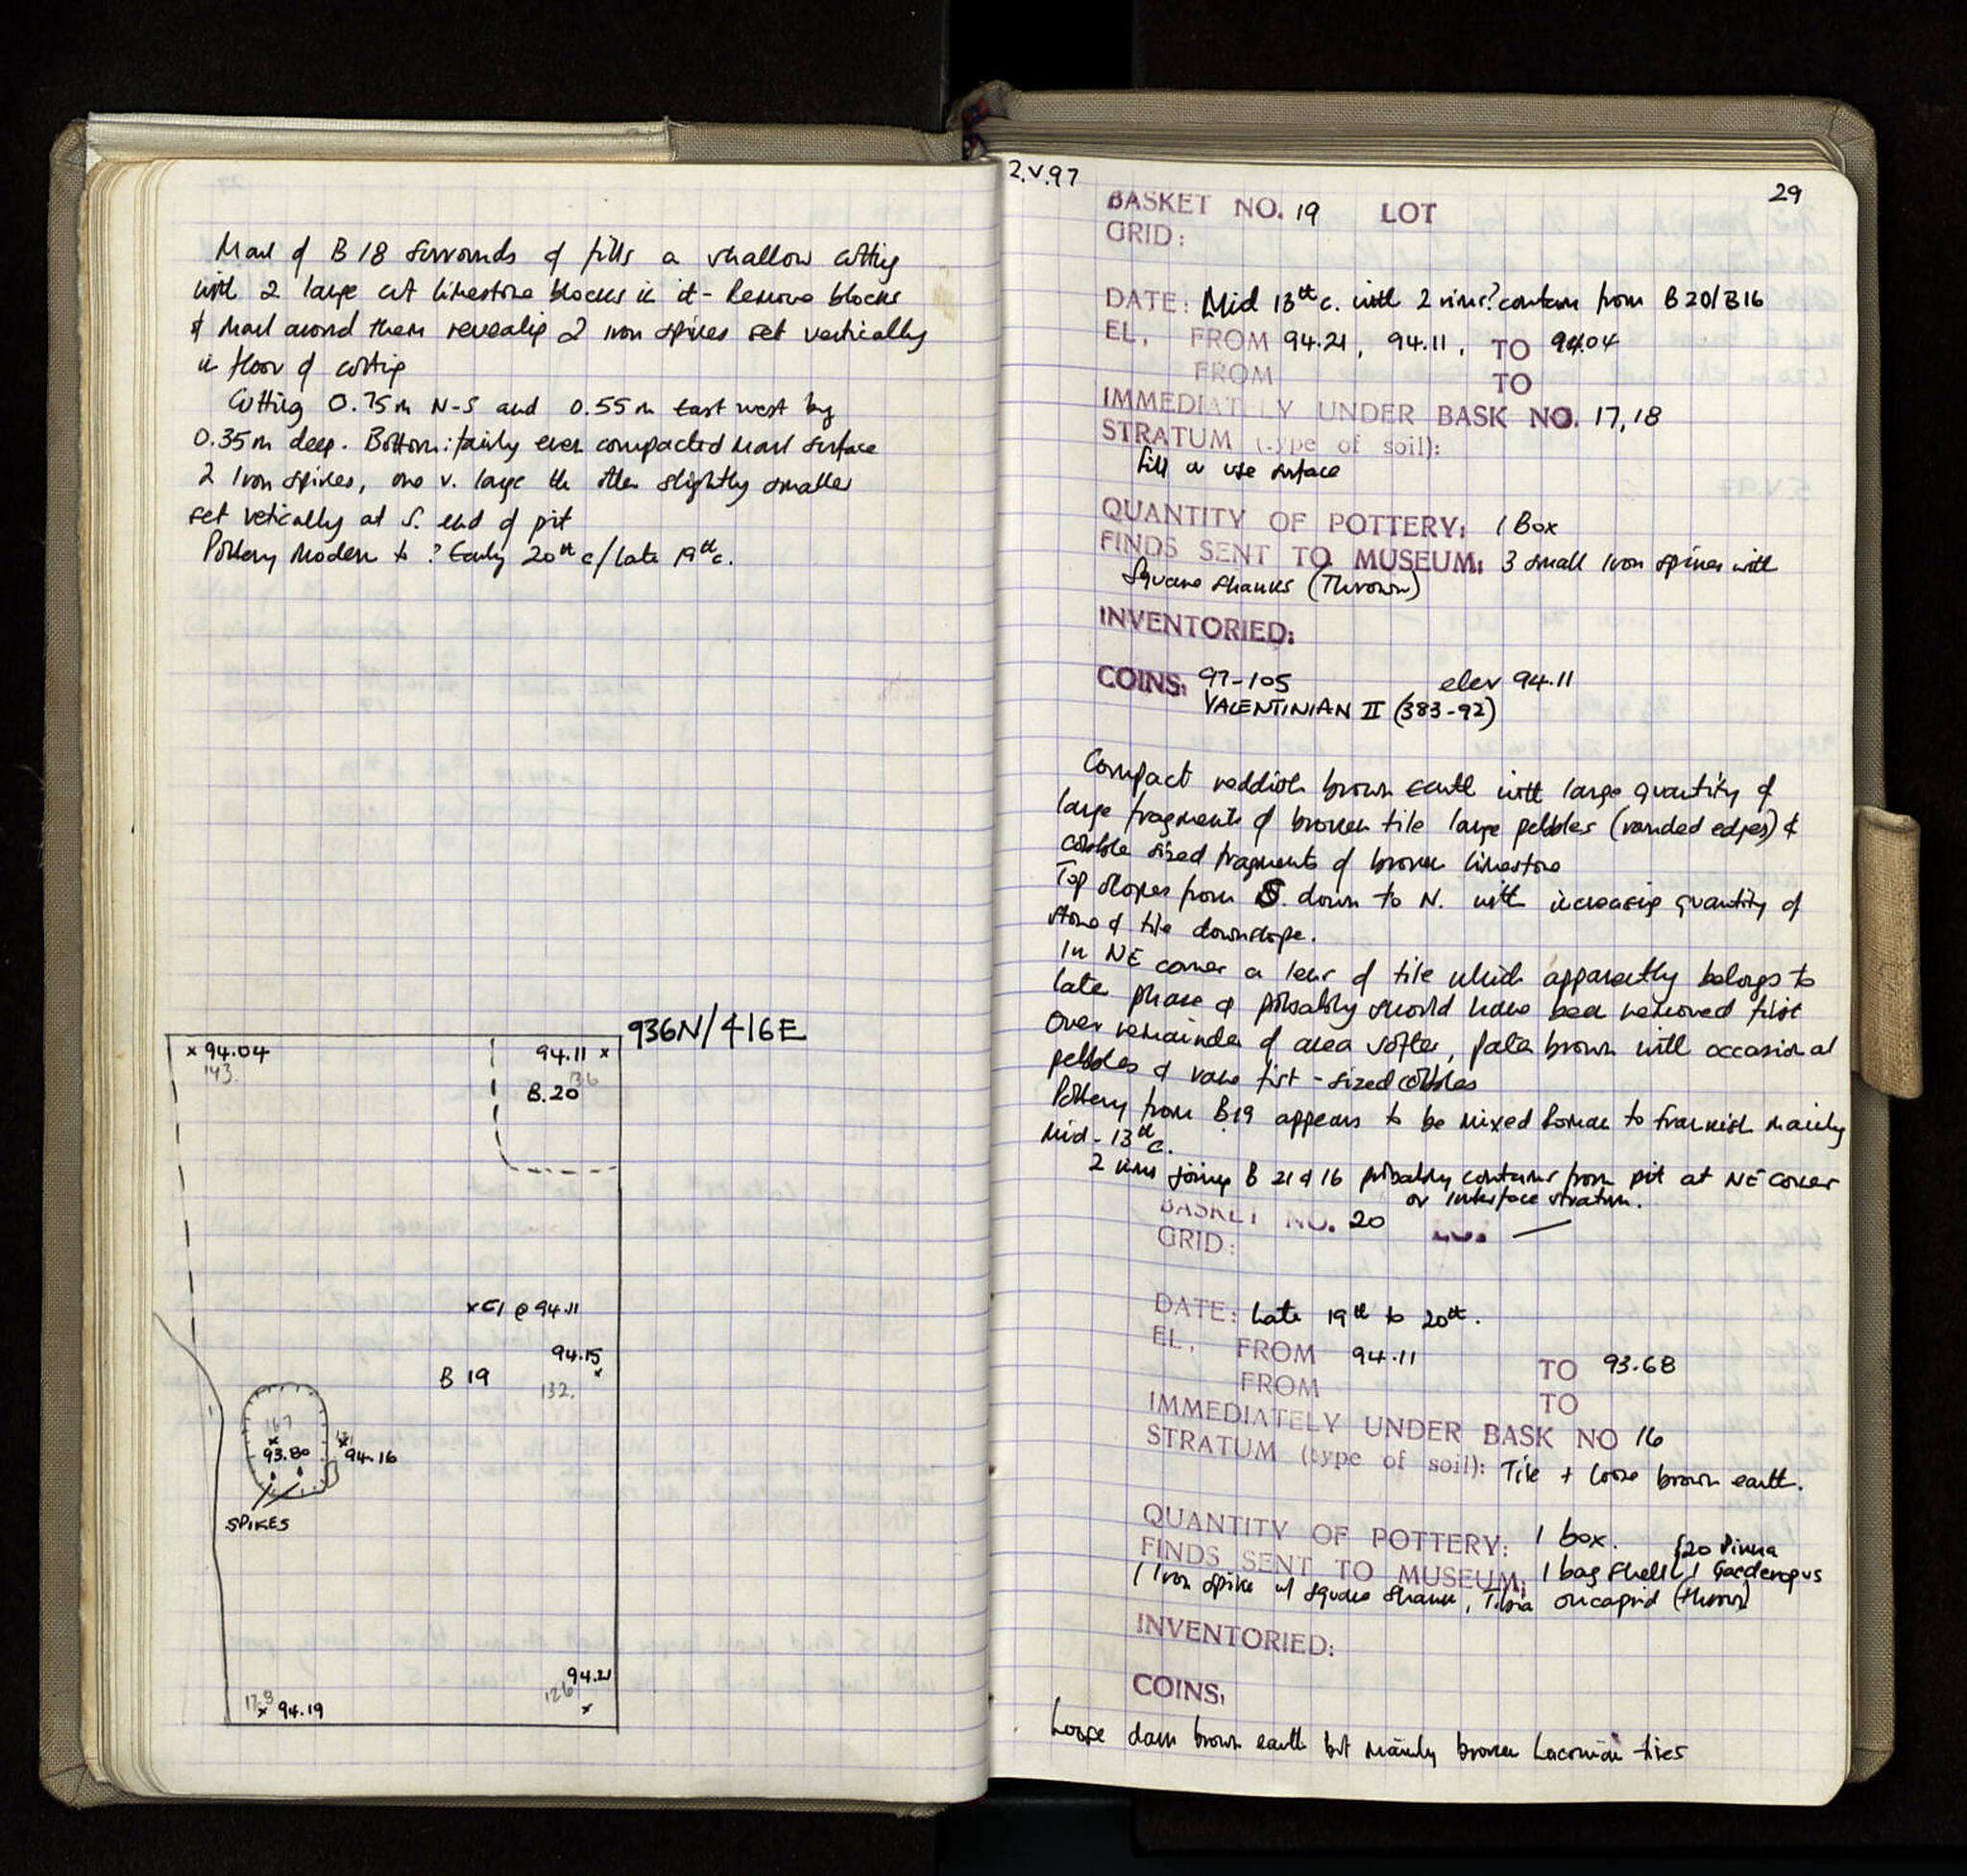 Marl of B 18 surrounds & fills a shallow cutting
with 2 large cut limestone blocks in it - Remove blocks
& marl around them revealing 2 iron spikes set vertically
in floor of cutting
Cutting 0.75m N-S and 0.55m East west by
0.35m deep. Bottom: fairly even compacted marl surface
2 Iron spikes, one v. large the other slightly smaller
set vetically at S. end of pit
Pottery Modern to ? Early 20th c/late 19th c.
936N/416E
x 94.04
143.
94.11 x
136
B.20
x C1 @ 94.11
94.15
x
B 19
132.
167
x
93.80
131
x
94.16
SPIKES
94.21
126
x
x 94.19
2.V.97
29
BASKET NO. 19 LOT
GRID:
DATE: Mid 13th c. with 2 rims? contam from B20/B16
EL. FROM 94.21, 94.11. TO 94.04
FROM TO
IMMEDIATELY UNDER BASK NO. 17,18
STRATUM (type of soil):
fill or use surface
QUANTITY OF POTTERY: 1 Box
FINDS SENT TO MUSEUM: 3 small Iron spikes with
Square shanks (Thrown)
INVENTORIED:
COINS: 97-105 elev 94.11
VALENTINIAN II (383-92)
Compact reddish brown earth with large quantity of
large fragments of broken tile large pebbles (rounded edges) &
cobble sized fragments of broken limestone
Top slopes from S. down to N. with increasing quantity of
stone & tile downslope.
In NE corner a lens of tile which apparently belongs to
late phase & probably should have been removed first
Over remainder of area softer, pale brown with occasional
pebbles & rare fist-sized cobbles
Pottery from B19 appears to be mixed Roman to Frankish mainly
Mid-13th c.
2 rims joining B 21 & 16 probably contams from pit at NE corner
or interface stratum.
BASKET NO. 20 LOT —
GRID:
DATE: Late 19th to 20th.
EL. FROM 94.11 TO 93.68
FROM TO
IMMEDIATELY UNDER BASK NO 16
STRATUM (type of soil): Tile + loose brown earth.
QUANTITY OF POTTERY: 1 box.
{20 Pinna
FINDS SENT TO MUSEUM: 1 bag Shell { 1 Gaederopus
1 Iron spike w/ square shank, Tibia ovicaprid (thrown)
INVENTORIED:
COINS:
Loose dark brown earth but mainly broken Laconian tiles